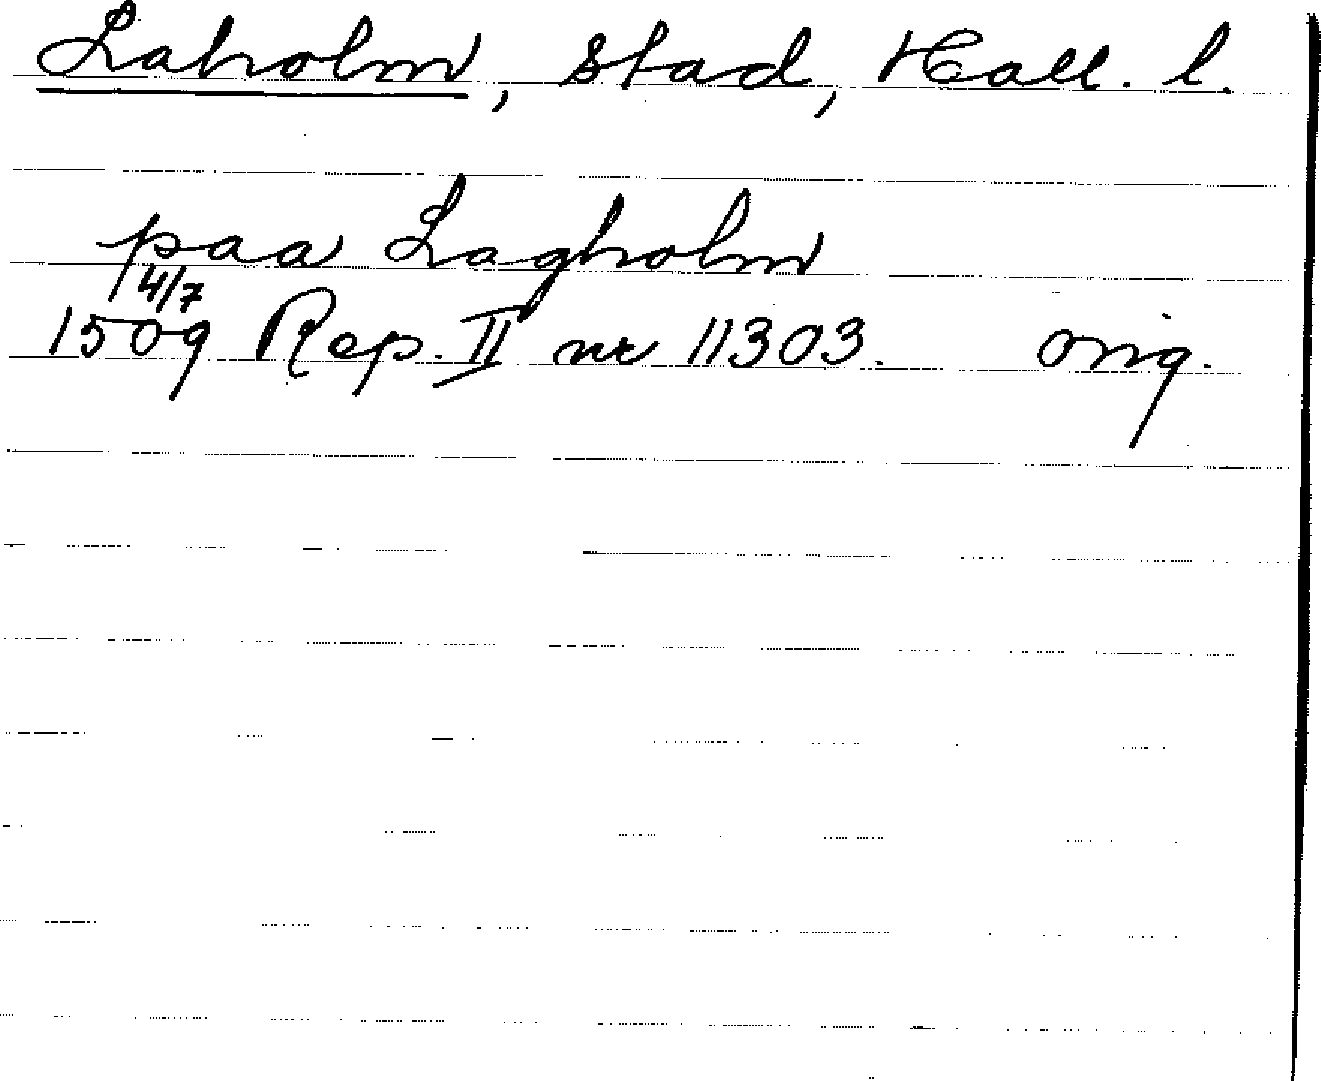 Laholm, stad, Hall. l.
paa Lagholm
4/7
1509 Rep. II nr 11303. orig.